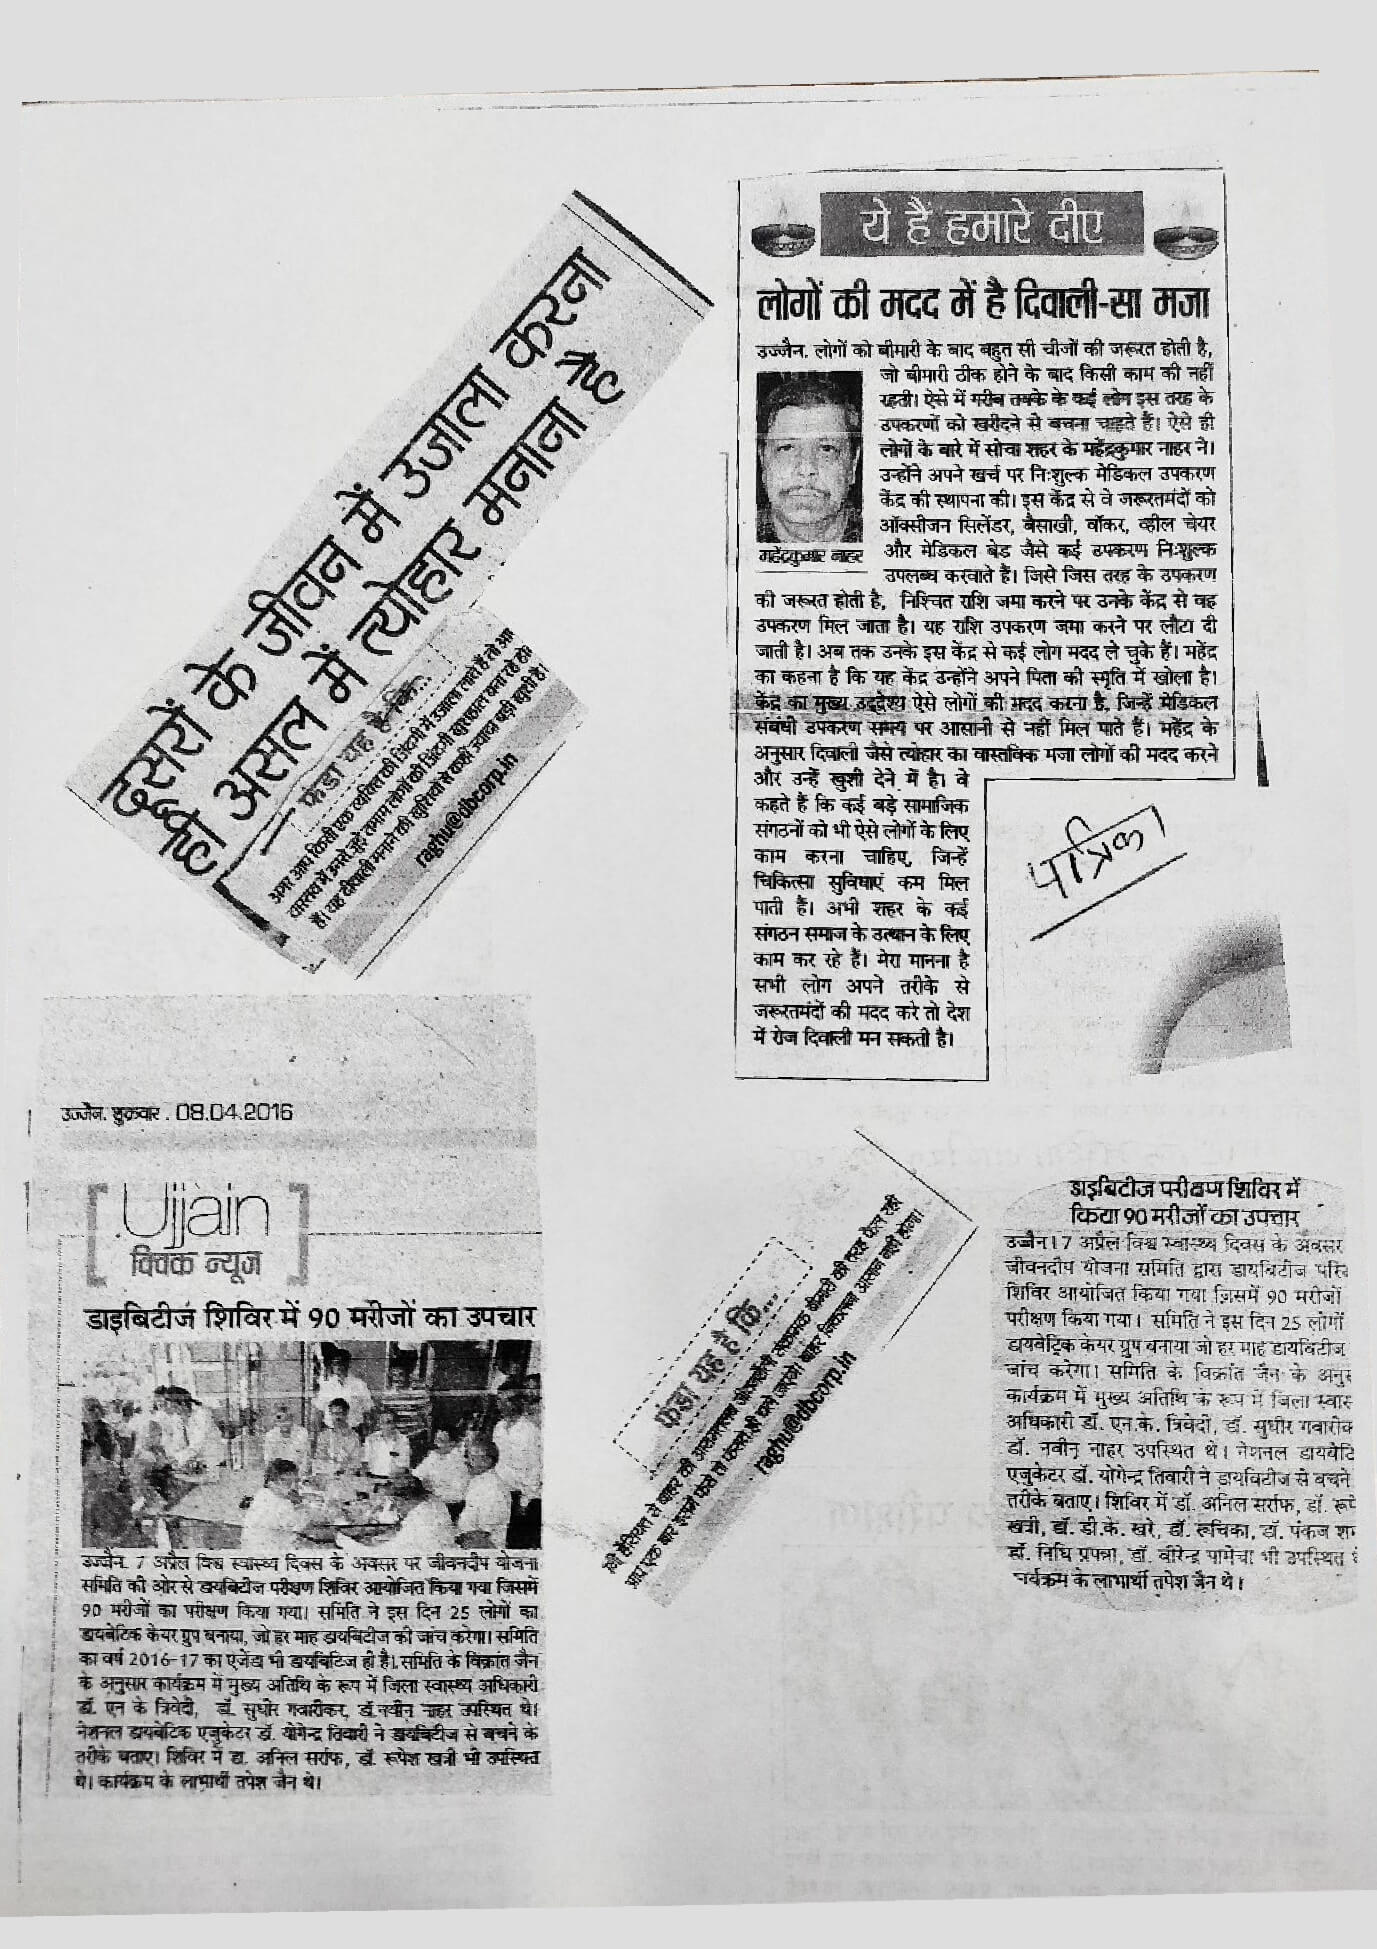 दूसरों के जीवन में उजाला करना
ही असल में त्योहार मनाना है
फंडा यह है कि...
अगर आप किसी एक व्यक्ति की जिंदगी में उजाला लाते हैं तो आप
वास्तव में उनसे जुड़े तमाम लोगों की जिंदगी खुशहाल बना रहे होते
हैं। यह दीवाली मनाने की खुशियों से कहीं ज्यादा बड़ी खुशी है।
raghu@dbcorp.in
ये हैं हमारे दीए
लोगों की मदद में है दिवाली-सा मजा
उज्जैन. लोगों को बीमारी के बाद बहुत सी चीजों की जरूरत होती है,
जो बीमारी ठीक होने के बाद किसी काम की नहीं
रहती। ऐसे में गरीब तबके के कई लोग इस तरह के
उपकरणों को खरीदने से बचना चाहते हैं। ऐसे ही
लोगों के बारे में सोचा शहर के महेंद्रकुमार नाहर ने।
उन्होंने अपने खर्च पर निःशुल्क मेडिकल उपकरण
केंद्र की स्थापना की। इस केंद्र से वे जरूरतमंदों को
ऑक्सीजन सिलेंडर, बैसाखी, वॉकर, व्हील चेयर
और मेडिकल बेड जैसे कई उपकरण निःशुल्क
महेंद्रकुमार नाहर
उपलब्ध करवाते हैं। जिसे जिस तरह के उपकरण
की जरूरत होती है, निश्चित राशि जमा करने पर उनके केंद्र से वह
उपकरण मिल जाता है। यह राशि उपकरण जमा करने पर लौटा दी
जाती है। अब तक उनके इस केंद्र से कई लोग मदद ले चुके हैं। महेंद्र
का कहना है कि यह केंद्र उन्होंने अपने पिता की स्मृति में खोला है।
केंद्र का मुख्य उद्देश्य ऐसे लोगों की मदद करना है, जिन्हें मेडिकल
संबंधी उपकरण समय पर आसानी से नहीं मिल पाते हैं। महेंद्र के
अनुसार दिवाली जैसे त्योहार का वास्तविक मजा लोगों की मदद करने
और उन्हें खुशी देने में है। वे
कहते हैं कि कई बड़े सामाजिक
संगठनों को भी ऐसे लोगों के लिए
काम करना चाहिए, जिन्हें
चिकित्सा सुविधाएं कम मिल
पाती हैं। अभी शहर के कई
संगठन समाज के उत्थान के लिए
काम कर रहे हैं। मेरा मानना है
सभी लोग अपने तरीके से
जरूरतमंदों की मदद करे तो देश
में रोज दिवाली मन सकती है।
पत्रिका
उज्जैन. शुक्रवार . 08.04.2016
Ujjain
क्विक न्यूज
डाइबिटीज शिविर में 90 मरीजों का उपचार
उज्जैन. 7 अप्रैल विश्व स्वास्थ्य दिवस के अवसर पर जीवनदीप योजना
समिति की ओर से डायबिटीज परीक्षण शिविर आयोजित किया गया जिसमें
90 मरीजों का परीक्षण किया गया। समिति ने इस दिन 25 लोगों का
डायबेटिक केयर ग्रुप बनाया, जो हर माह डायबिटीज की जांच करेगा। समिति
का वर्ष 2016-17 का एजेंडा भी डायबिटिज ही है। समिति के विक्रांत जैन
के अनुसार कार्यक्रम में मुख्य अतिथि के रूप में जिला स्वास्थ्य अधिकारी
डॉ. एन के त्रिवेदी, डॉ. सुधीर गवारीकर, डॉ. नवीन नाहर उपस्थित थे।
नेशनल डायबेटिक एजुकेटर डॉ. योगेन्द्र तिवारी ने डायबिटीज से बचने के
तरीके बताए। शिविर में डा. अनिल सर्राफ, डॉ. रूपेश खत्री भी उपस्थित
थे। कार्यक्रम के लाभार्थी तपेश जैन थे।
फंडा यह है कि...
हैसियत से बाहर की
आप एक बार इसमें फंसे तो बाहर निकलना आसान नहीं होगा।
raghu@dbcorp.in
डाइबिटीज परीक्षण शिविर में
किया 90 मरीजों का उपचार
उज्जैन। 7 अप्रैल विश्व स्वास्थ्य दिवस के अवसर
जीवनदीप योजना समिति द्वारा डायबिटीज परि
शिविर आयोजित किया गया जिसमें 90 मरीजों
परीक्षण किया गया। समिति ने इस दिन 25 लोगों
डायबेट्रिक केयर ग्रुप बनाया जो हर माह डायबिटीज
जांच करेगा। समिति के विक्रांत जैन के अनुस
कार्यक्रम में मुख्य अतिथि के रूप में जिला स्वास
अधिकारी डॉ. एन.के. त्रिवेदी, डॉ. सुधीर गवारीक
डॉ. नवीन नाहर उपस्थित थे। नेशनल डायबेटि
एजुकेटर डॉ. योगेन्द्र तिवारी ने डायबिटीज से बचने
तरीके बताए। शिविर में डॉ. अनिल सर्राफ, डॉ. रूपे
खत्री, डॉ. डी.के. खरे, डॉ. रूचिका, डॉ. पंकज शम
डॉ. निधि प्रपन्ना, डॉ. वीरेन्द्र पामेचा भी उपस्थित थे
कार्यक्रम के लाभार्थी तपेश जैन थे।